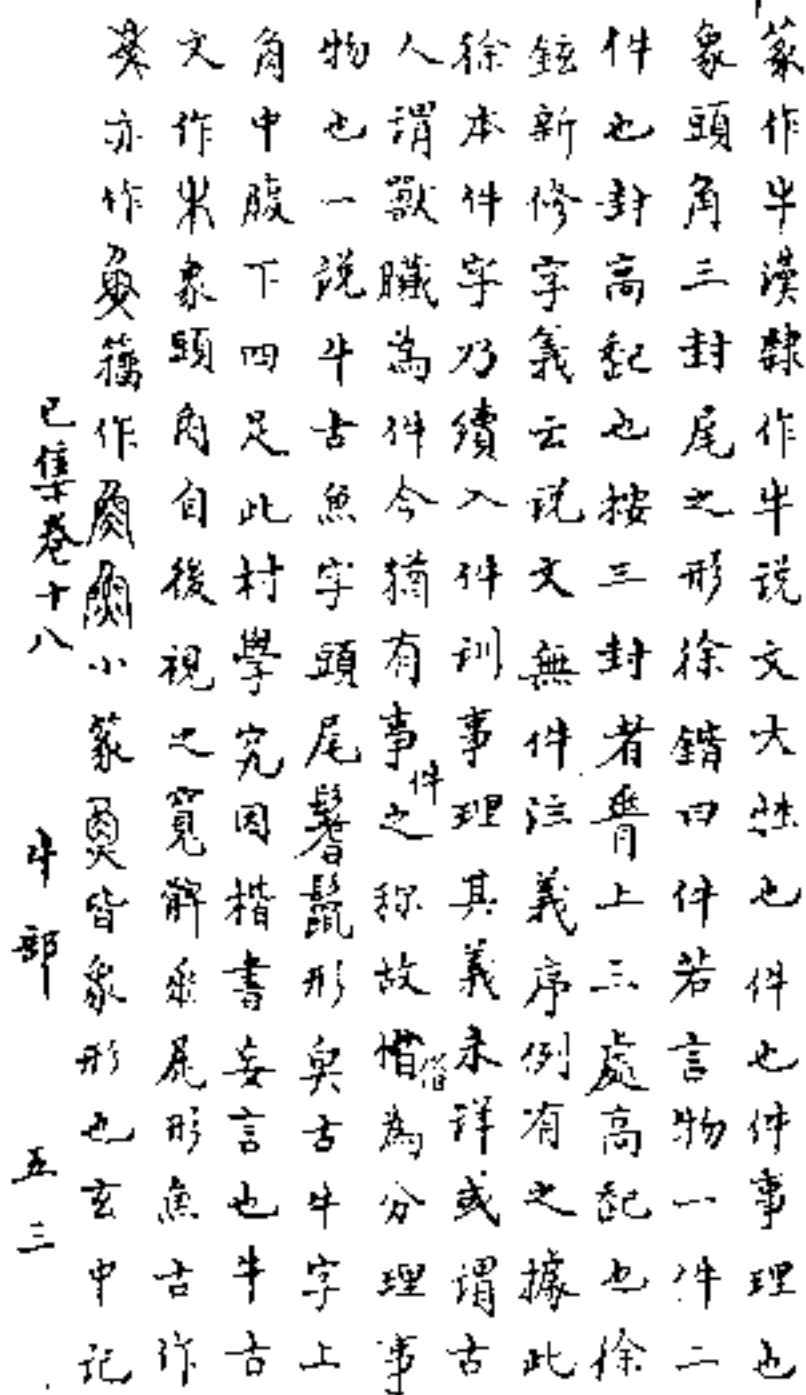 篆作牛漢隸作牛説文大牲也件也件事理也
象頭角三封尾之形徐鍇曰件若言物一件二
件也封高起也按三封者脊上三處高起也徐
鉉新修字義云説文無件注義序例有之據此
徐本件字乃續入件訓事理其義未詳或謂古
人謂獸臟為件今猶有事件之称故借俗為分理事
物也一説牛古魚字頭尾鬐鬣形𤋳古牛字上
角中腹下四足此村學究因楷書妄言也牛古
文作象頭角自後視之寬解垂尾形魚古作
亦作籀作小篆皆象形也玄中記
巳集卷十八
牛部
五三